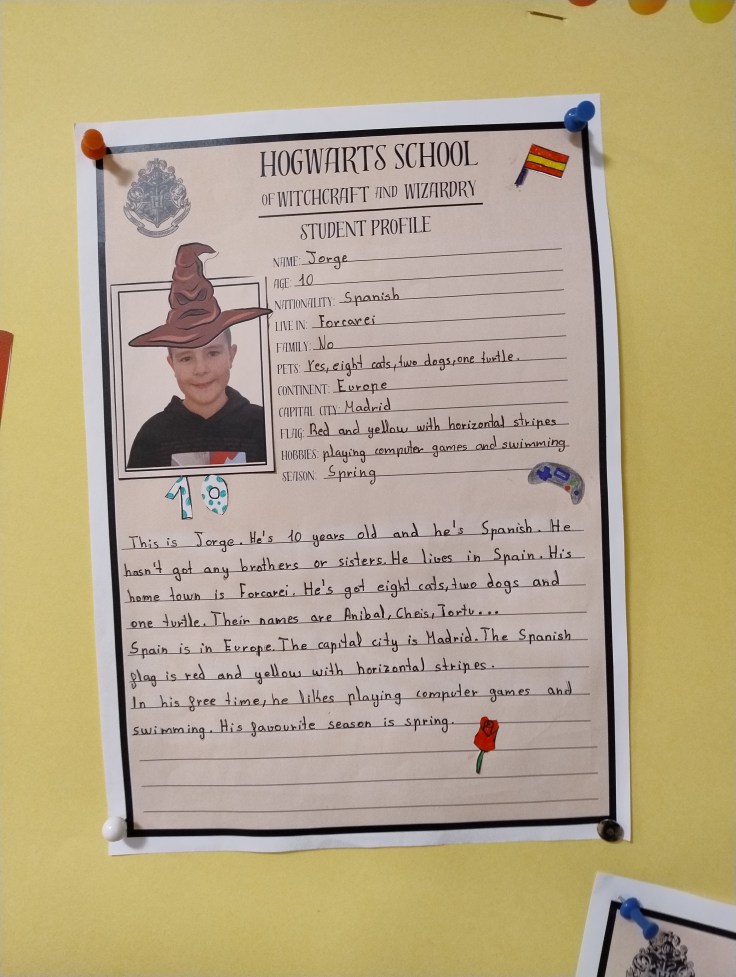 HOGWARTS SCHOOL
OF WITCHCRAFT AND WIZARDRY
STUDENT PROFILE
NAME: Jorge
AGE: 10
NATIONALITY: Spanish
LIVE IN: Forcarei
FAMILY: No
PETS: Yes, eight cats, two dogs, one turtle.
CONTINENT: Europe
CAPITAL CITY: Madrid
FLAG: Red and yellow with horizontal stripes
HOBBIES: playing computer games and swimming
SEASON: Spring
10
This is Jorge. He's 10 years old and he's Spanish. He
hasn't got any brothers or sisters. He lives in Spain. His
home town is Forcarei. He's got eight cats, two dogs and
one turtle. Their names are Anibal, Cheis, Tortu...
Spain is in Europe. The capital city is Madrid. The Spanish
flag is red and yellow with horizontal stripes.
In his free time, he likes playing computer games and
swimming. His favourite season is spring.